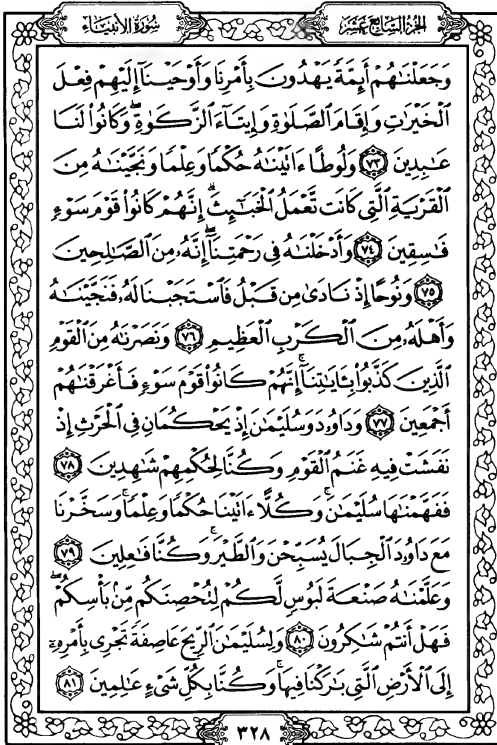 سُورَةُ الأَنبِيَاءِ
الجُزءُ السَّابِعَ عَشَرَ
وَجَعَلْنَٰهُمْ أَئِمَّةً يَهْدُونَ بِأَمْرِنَا وَأَوْحَيْنَآ إِلَيْهِمْ فِعْلَ
ٱلْخَيْرَٰتِ وَإِقَامَ ٱلصَّلَوٰةِ وَإِيتَآءَ ٱلزَّكَوٰةِ ۖ وَكَانُوا۟ لَنَا
عَٰبِدِينَ ٧٣ وَلُوطًا ءَاتَيْنَٰهُ حُكْمًا وَعِلْمًا وَنَجَّيْنَٰهُ مِنَ
ٱلْقَرْيَةِ ٱلَّتِى كَانَت تَّعْمَلُ ٱلْخَبَٰٓئِثَ ۗ إِنَّهُمْ كَانُوا۟ قَوْمَ سَوْءٍ
فَٰسِقِينَ ٧٤ وَأَدْخَلْنَٰهُ فِى رَحْمَتِنَآ ۖ إِنَّهُۥ مِنَ ٱلصَّٰلِحِينَ
٧٥ وَنُوحًا إِذْ نَادَىٰ مِن قَبْلُ فَٱسْتَجَبْنَا لَهُۥ فَنَجَّيْنَٰهُ
وَأَهْلَهُۥ مِنَ ٱلْكَرْبِ ٱلْعَظِيمِ ٧٦ وَنَصَرْنَٰهُ مِنَ ٱلْقَوْمِ
ٱلَّذِينَ كَذَّبُوا۟ بِـَٔايَٰتِنَآ ۚ إِنَّهُمْ كَانُوا۟ قَوْمَ سَوْءٍ فَأَغْرَقْنَٰهُمْ
أَجْمَعِينَ ٧٧ وَدَاوُۥدَ وَسُلَيْمَٰنَ إِذْ يَحْكُمَانِ فِى ٱلْحَرْثِ إِذْ
نَفَشَتْ فِيهِ غَنَمُ ٱلْقَوْمِ وَكُنَّا لِحُكْمِهِمْ شَٰهِدِينَ ٧٨
فَفَهَّمْنَٰهَا سُلَيْمَٰنَ ۚ وَكُلًّا ءَاتَيْنَا حُكْمًا وَعِلْمًا ۚ وَسَخَّرْنَا
مَعَ دَاوُۥدَ ٱلْجِبَالَ يُسَبِّحْنَ وَٱلطَّيْرَ ۚ وَكُنَّا فَٰعِلِينَ ٧٩
وَعَلَّمْنَٰهُ صَنْعَةَ لَبُوسٍ لَّكُمْ لِتُحْصِنَكُم مِّنۢ بَأْسِكُمْ ۖ
فَهَلْ أَنتُمْ شَٰكِرُونَ ٨٠ وَلِسُلَيْمَٰنَ ٱلرِّيحَ عَاصِفَةً تَجْرِى بِأَمْرِهِۦٓ
إِلَى ٱلْأَرْضِ ٱلَّتِى بَٰرَكْنَا فِيهَا ۚ وَكُنَّا بِكُلِّ شَىْءٍ عَٰلِمِينَ ٨١
٣٢٨